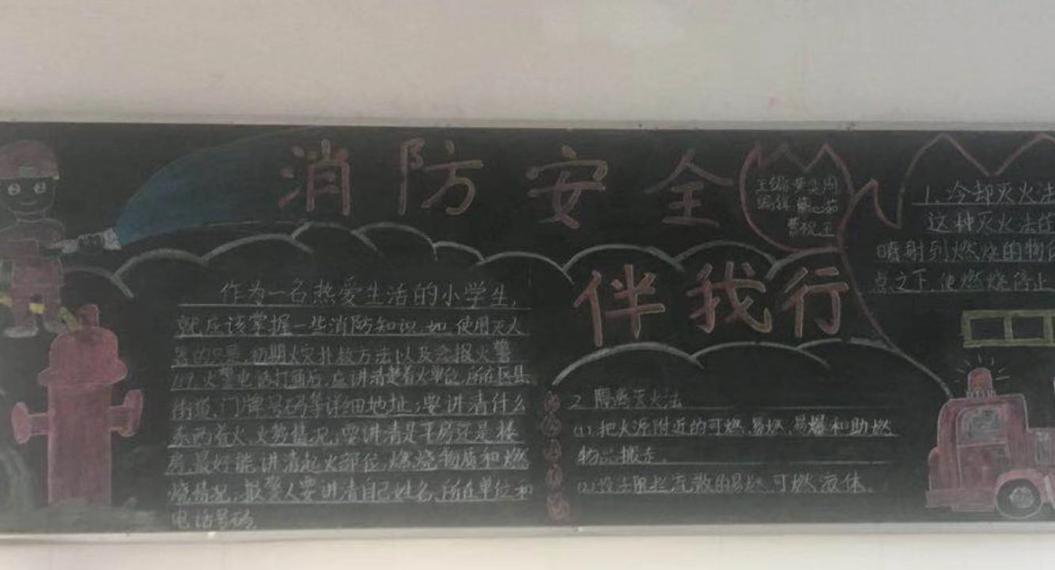 消防安全
伴我行
主编
编辑
作为一名热爱生活的小学生,
就应该掌握一些消防知识,如使用灭火
初期火灾扑救方法以及怎报火警
火警电话打通后,应讲清楚着火单位,所在区县
街道,门牌号码等详细地址;要讲清什么
东西着火,火势情况;要讲清是平房还是楼
房,最好能讲清起火部位,燃烧物质和燃
烧情况;报警人要讲清自己姓名,所在单位和
电话号码
2 隔离灭火法
(1).把火源附近的可燃,易燃,易爆和助燃
物品搬走,
阻拦流散的易燃,可燃液体。
1.冷却灭火法
这种灭火法的
喷射到燃烧的物
点之下,使燃烧停止